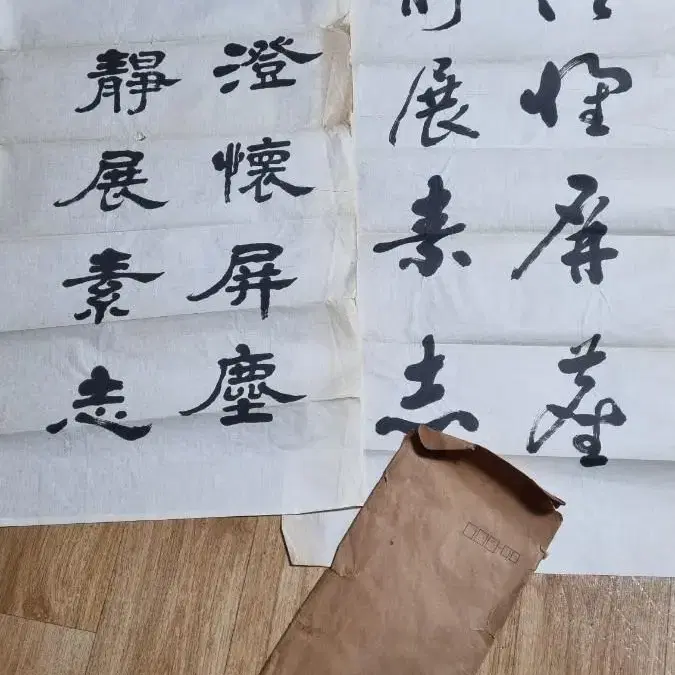 懷屏塵
展素志
澄懷屏塵
靜展素志